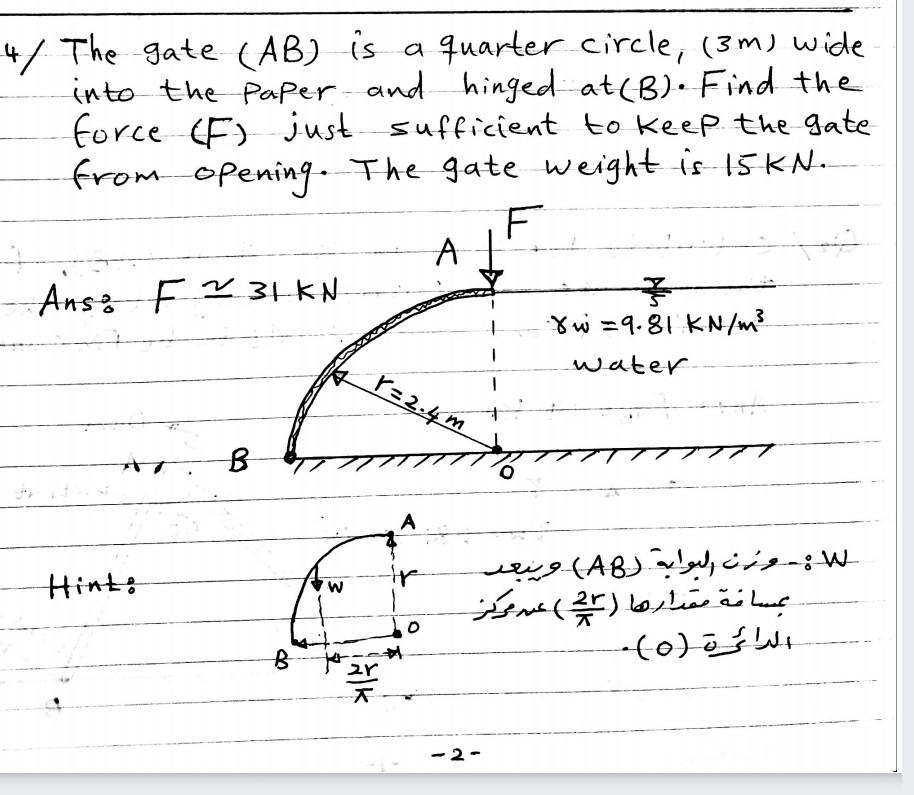 4/ The gate (AB) is a quarter circle, (3m) wide
into the paper and hinged at (B). Find the
force (F) just sufficient to keep the gate
from opening. The gate weight is 15 KN.
F
A
Ans: F ≃ 31 KN
γw = 9.81 KN/m³
water
r=2.4 m
B
O
Hint:
A
W
r
O
B
2r/π
W :- وزن البوابة (AB) ويبعد
بمسافة مقدارها (2r/π) عن مركز
الدائرة (O).
-2-